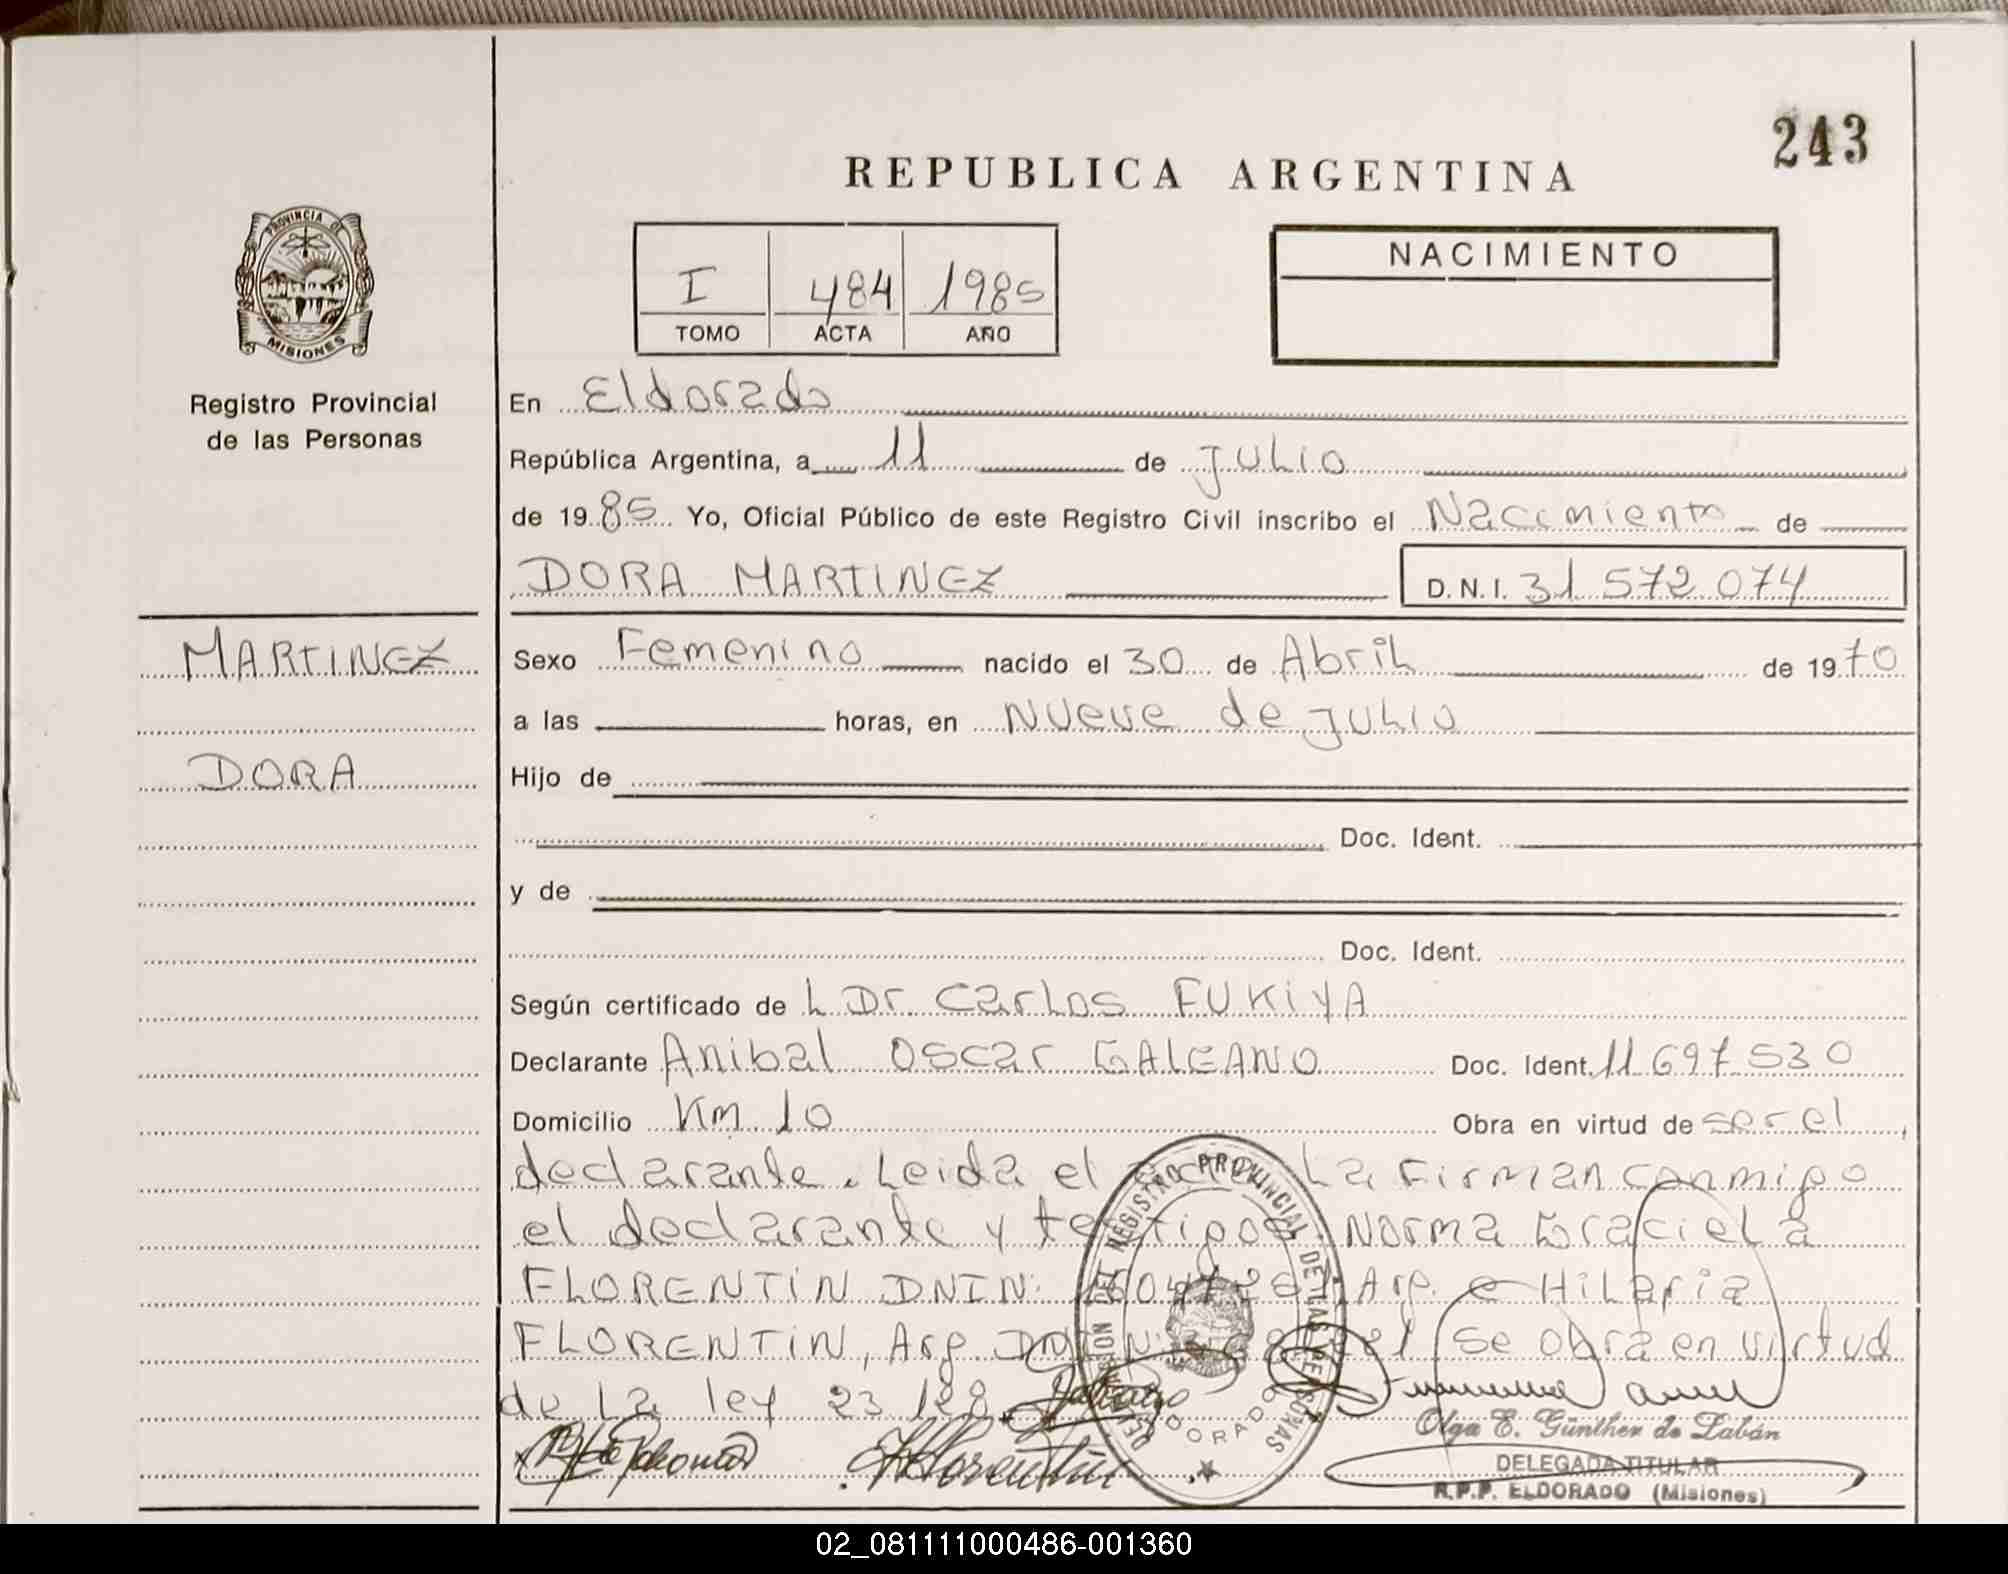 243
REPUBLICA ARGENTINA
PROVINCIA DE
MISIONES
Registro Provincial
de las Personas
I 484 1985
TOMO ACTA AÑO
NACIMIENTO
En Eldorado
República Argentina, a 11 de Julio
de 1985 Yo, Oficial Público de este Registro Civil inscribo el Nacimiento de
DORA MARTINEZ D.N.I. 31 572 074
MARTINEZ
DORA
Sexo Femenino nacido el 30 de Abril de 1970
a las horas, en Nueve de Julio
Hijo de
Doc. Ident.
y de
Doc. Ident.
Según certificado de L Dr Carlos FUKIYA
Declarante Anibal Oscar GALEANO Doc. Ident. 11 697 530
Domicilio Km 10 Obra en virtud de ser el
declarante. Leida el acta La Firman conmigo
el declarante y testigos Norma Graciela
FLORENTIN DNIN: Arg. e Hilaria
FLORENTIN, Arg. DNI N: se obra en virtud
de la ley 23 128
Florentin
REGISTRO PROVINCIAL DE LAS PERSONAS
ELDORADO
Olga E. Günther de Labán
DELEGADA TITULAR
R.P.P. ELDORADO (Misiones)
02_081111000486-001360